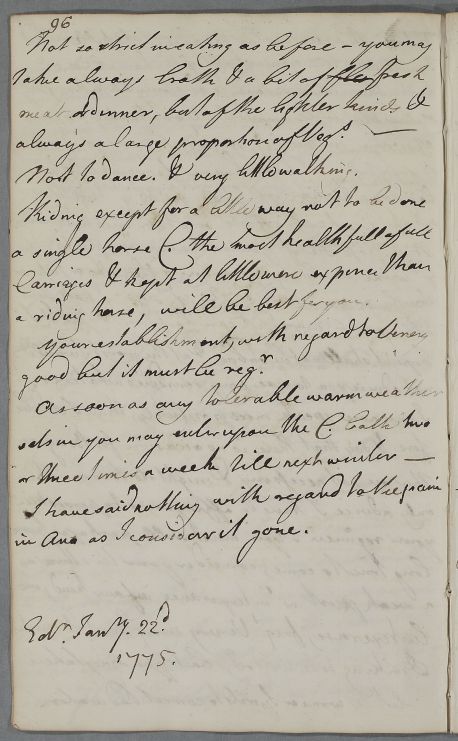 96
Not so strict in eating as before - you may
take always broth & a bit of fresh
meat at dinner, but of the lighter kinds &
always a large proportion of Vegs. —
Not to dance. & very little walking.
Riding except for a little way not to be done
a single horse C. the most healthfull of all
Carriages & kept at little more expence than
a riding horse, will be best for you.
Your establishment, with regard to Venery
good but it must be regr.
As soon as any tolerable warm weather
sets in you may enter upon the C. bath two
or three times a week till next winter —
I have said nothing with regard to the pain
in Ano as I consider it gone.
Edr. Jany. 22d.
1775.